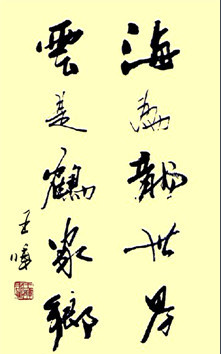 海為龍世界
雲是鶴家鄉
王峰